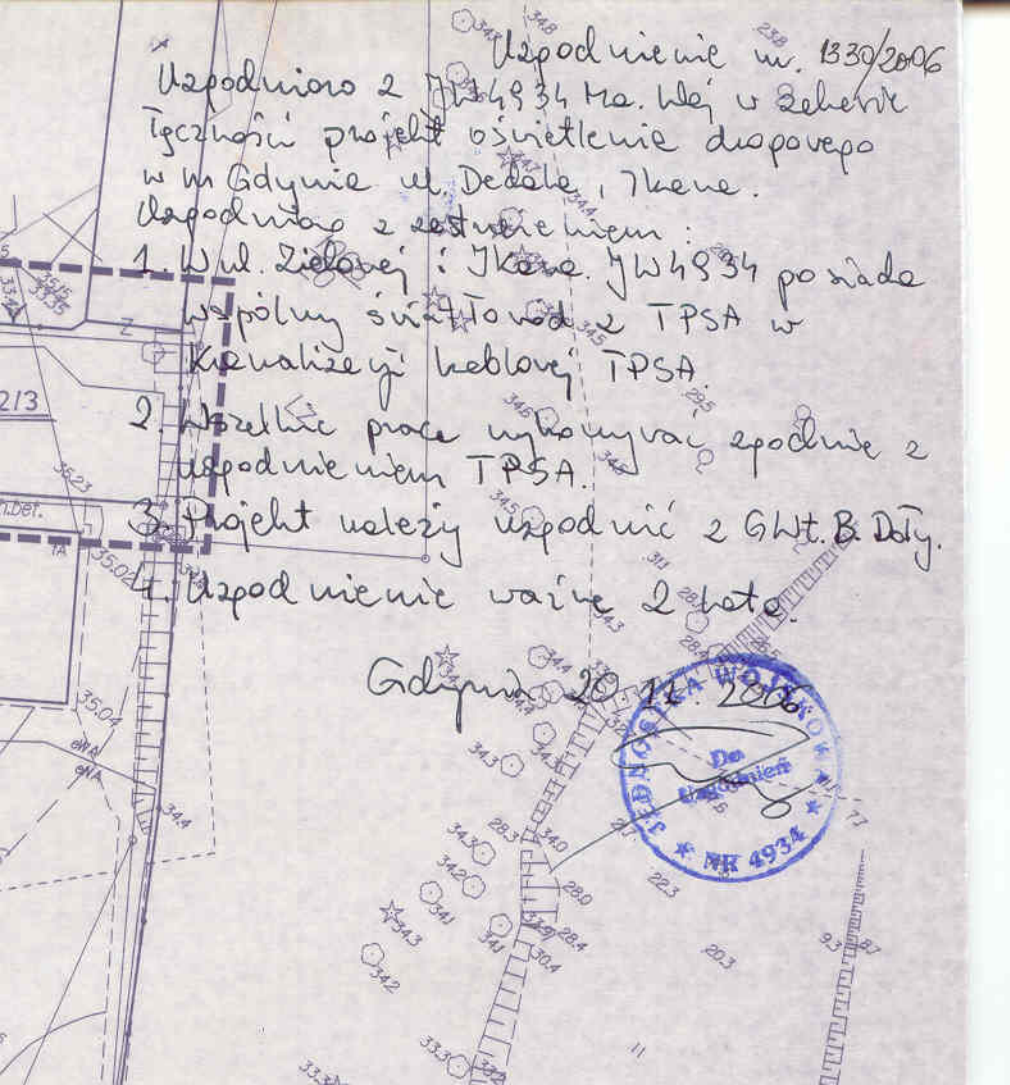 Uzgodnienie nr. 1330/2006
Uzgodniono z JW 4934 Ma. Wej w zakresie
łączności projekt oświetlenia drogowego
w m Gdynia ul. Dedala, Ikara.
Uzgodniono z zastrzeżeniem:
1. W ul. Zielonej i Ikara. JW4934 posiada
wspólny światłowód z TPSA w
Kanalizacji kablowej TPSA.
2. Wszelkie prace wykonywać zgodnie z
uzgodnieniem TPSA.
3. Projekt należy uzgodnić z GWt. B. Doły.
4. Uzgodnienie ważne 2 lata.
Gdynia 20.11.2006.
JEDNOSTKA WOJSKOWA
Do
Uzgodnień
NR 4934
34.8
23.8
34.4
34.5
29.5
34.6
34.5
31.1
28.4
26.5
34.4
34.3
34.3
28.3
34.0
34.2
28.0
34.1
34.3
34.1
28.4
30.4
34.2
22.3
20.3
9.3
8.7
7.1
33.3
33.35
2/3
35.23
h.bet.
35.02
35.04
eNA
eNA
34.4
Z